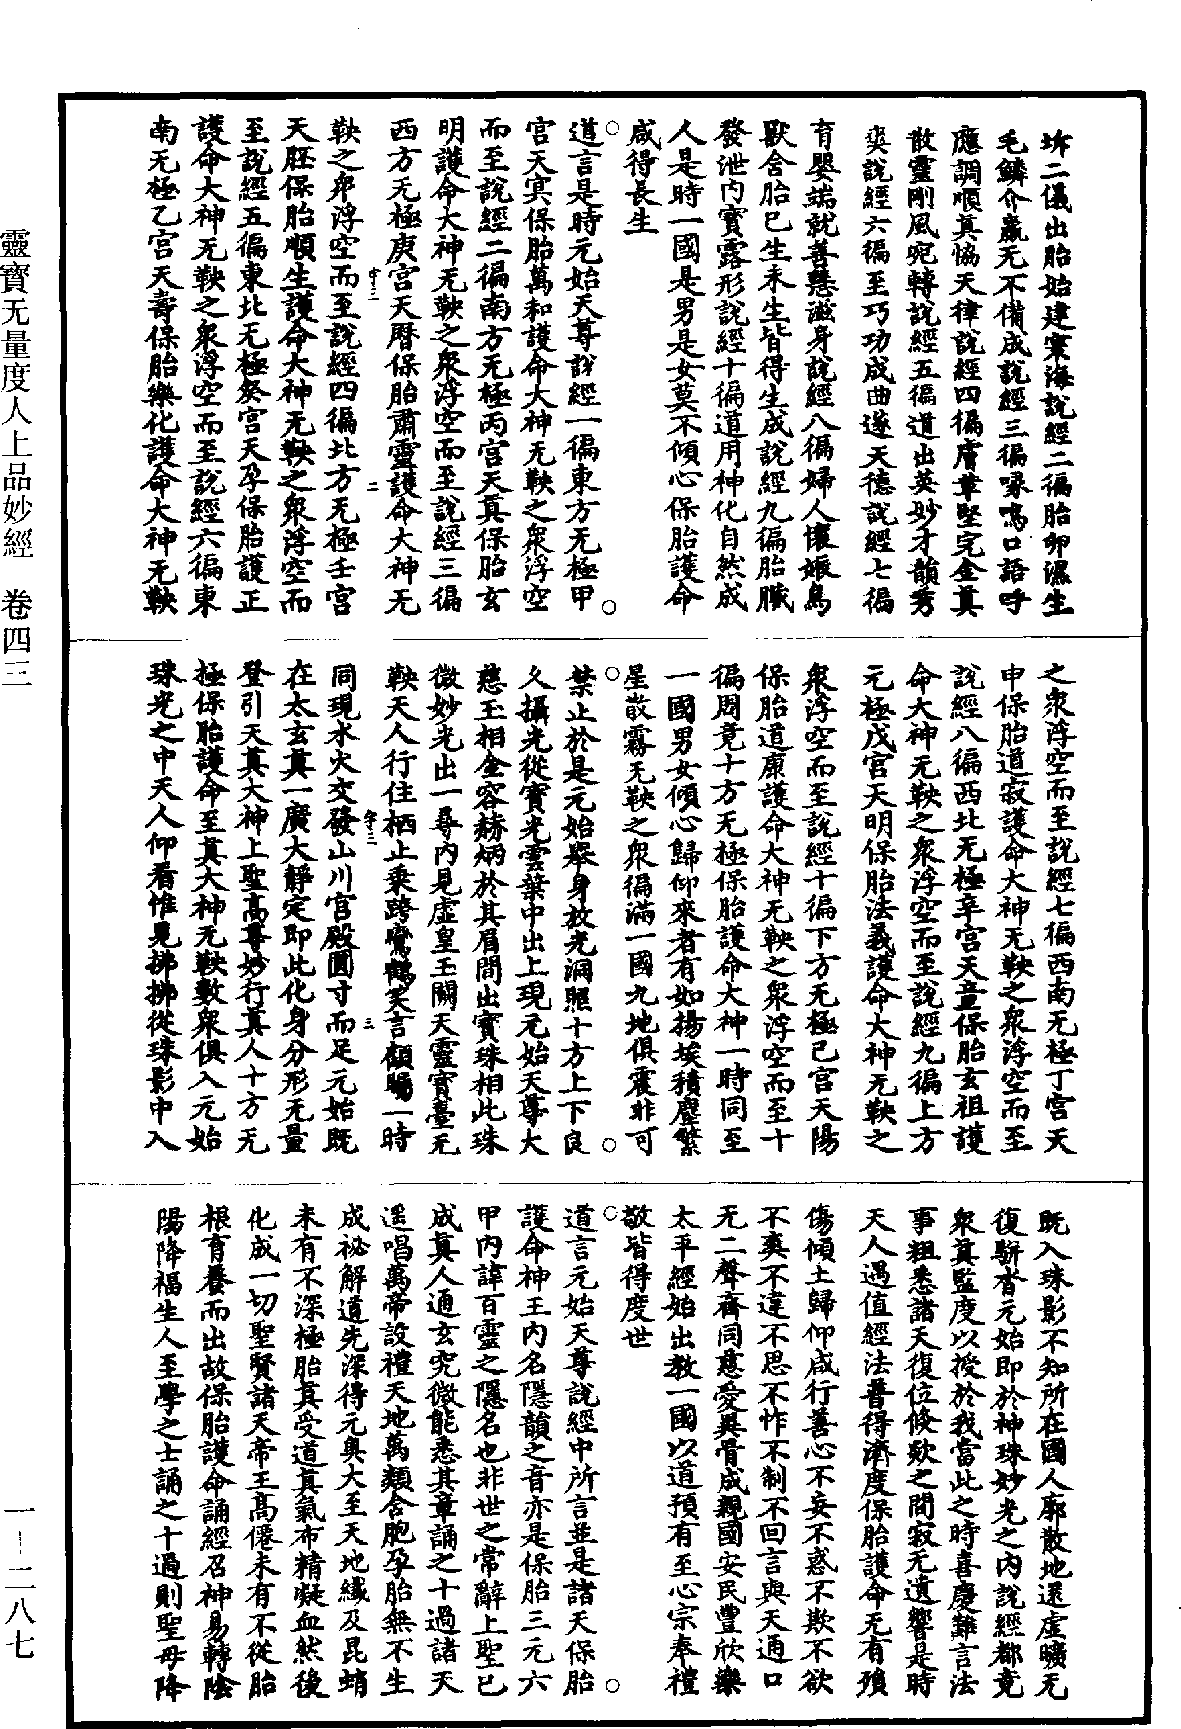 坼二儀出胎始建寰海說經二徧胎卵濕生
毛鱗介蠃无不備成說經三徧啄鳴口語呼
應調順真恊天律說經四徧膚革堅完金真
散靈剛風宛轉說經五徧道出英妙才韻秀
爽說經六徧至巧功成曲遂天德說經七徧
育嬰端就善慧滋身說經八徧婦人懷娠鳥
獸含胎已生未生皆得生成說經九徧胎臟
發泄內寶露形說經十徧道用神化自然成
人是時一國是男是女莫不傾心保胎護命
咸得長生
道言是時元始天尊說經一徧東方无極甲
宮天㝠保胎萬和護命大神无鞅之衆浮空
而至說經二徧南方无極丙宮天真保胎玄
明護命大神无鞅之衆浮空而至說經三徧
西方无極庚宮天曆保胎肅靈護命大神无
鞅之衆浮空而至說經四徧北方无極壬宮
天胚保胎順生護命大神无鞅之衆浮空而
至說經五徧東北无極癸宮天孕保胎護正
護命大神无鞅之衆浮空而至說經六徧東
南无極乙宮天壽保胎樂化護命大神无鞅
之衆浮空而至說經七徧西南无極丁宮天
申保胎道寂護命大神无鞅之衆浮空而至
說經八徧西北无極辛宮天童保胎玄祖護
命大神无鞅之衆浮空而至說經九徧上方
元極戊宮天明保胎法義護命大神无鞅之
衆浮空而至說經十徧下方无極己宮天陽
保胎道康護命大神无鞅之衆浮空而至十
徧周竟十方无極保胎護命大神一時同至
一國男女傾心歸仰來者有如揚埃積塵繁
星散霧无鞅之衆徧滿一國九地俱震非可
禁止於是元始舉身放光洞照十方上下良
久攝光從寶光雲葉中出上現元始天尊大
慈玉相金容赫炳於其眉間出寶珠相此珠
微妙光出一尋內見虛皇玉闕天靈寶臺无
鞅天人行住栖止乘跨鸞鶴笑言顧眄一時
同現水火交發山川宮殿圓寸而足元始既
在太玄真一廣大靜定即此化身分形无量
登引天真大神上聖高尊妙行真人十方无
極保胎護命至真大神无鞅數衆俱入元始
珠光之中天人仰看惟見拂拂從珠影中入
既入珠影不知所在國人廓散地還虛曠无
復駢沓元始即於神珠妙光之內說經都竟
衆真監度以授於我當此之時喜慶難言法
事粗悉諸天復位倏欻之間寂无遺響是時
天人遇值經法普得濟度保胎護命无有殞
傷傾土歸仰咸行善心不妄不惑不欺不欲
不爽不違不思不怍不制不回言與天通口
无二聲齊同慈愛異骨成親國安民豐欣樂
太平經始出教一國以道預有至心宗奉禮
敬皆得度世
道言元始天尊說經中所言並是諸天保胎
護命神王內名隱韻之音亦是保胎三元六
甲內諱百靈之隱名也非世之常辭上聖已
成真人通玄究微能悉其章誦之十過諸天
遥唱萬帝設禮天地萬類含胞孕胎無不生
成祕解道先深得元奥大至天地纖及昆蛸
未有不深極胎真受道真氣布精凝血然後
化成一切聖賢諸天帝王高僊未有不從胎
根育養而出故保胎護命誦經召神易轉陰
陽降福生人至學之士誦之十過則聖母降
字三
二
字三
三
靈寶无量度人上品妙經　卷四三
一—二八七